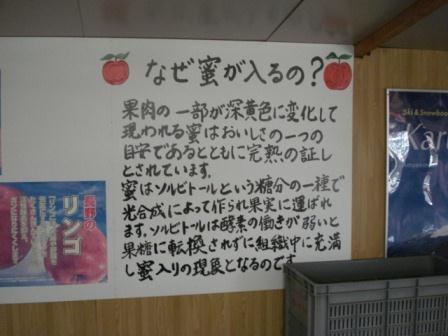 なぜ蜜が入るの?
果肉の一部が深黄色に変化して
現われる蜜はおいしさの一つの
目安であるとともに完熟の証し
とされています。
蜜はソルビトールという糖分の一種で
光合成によって作られ果実に運ばれ
ます。ソルビトールは酵素の働きが弱いと
果糖に転換されずに組織中に充満
し蜜入りの現象となるのです。
長野の
リンゴ
Ski & Snowboa
Kan